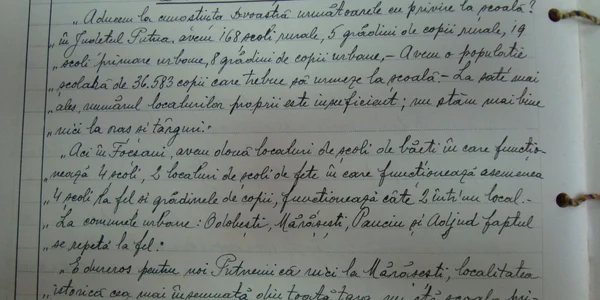 „Aducem la cunoștiința Dvoastră următoarele cu privire la școală?
„în Județul Putna, avem 168 școli rurale, 5 grădini de copii rurale, 19
„școli primare urbane, 8 grădini de copii urbane,- Avem o populație
„școlară de 36.583 copii care trebue să urmeze la școală.- La sate mai
„ales, numărul localurilor proprii este insuficient; nu stăm mai bine
„nici la oraș și târguri."
„Aci în Focșani, avem două localuri de școli de băeti în care funcțio-
„nează 4 școli, 2 localuri de școli de fete în care funcționează asemenea
„4 școli, la fel și grădinele de copii, funcționează câte 2 într'un local.-
„La comunele urbane: Odobești, Mărășești, Panciu și Adjud faptul
„se repetă la fel."
„E dureros pentru noi Putnenii că nici la Mărășești, localitatea
„istorică cea mai însemnată din toată țara nu stă